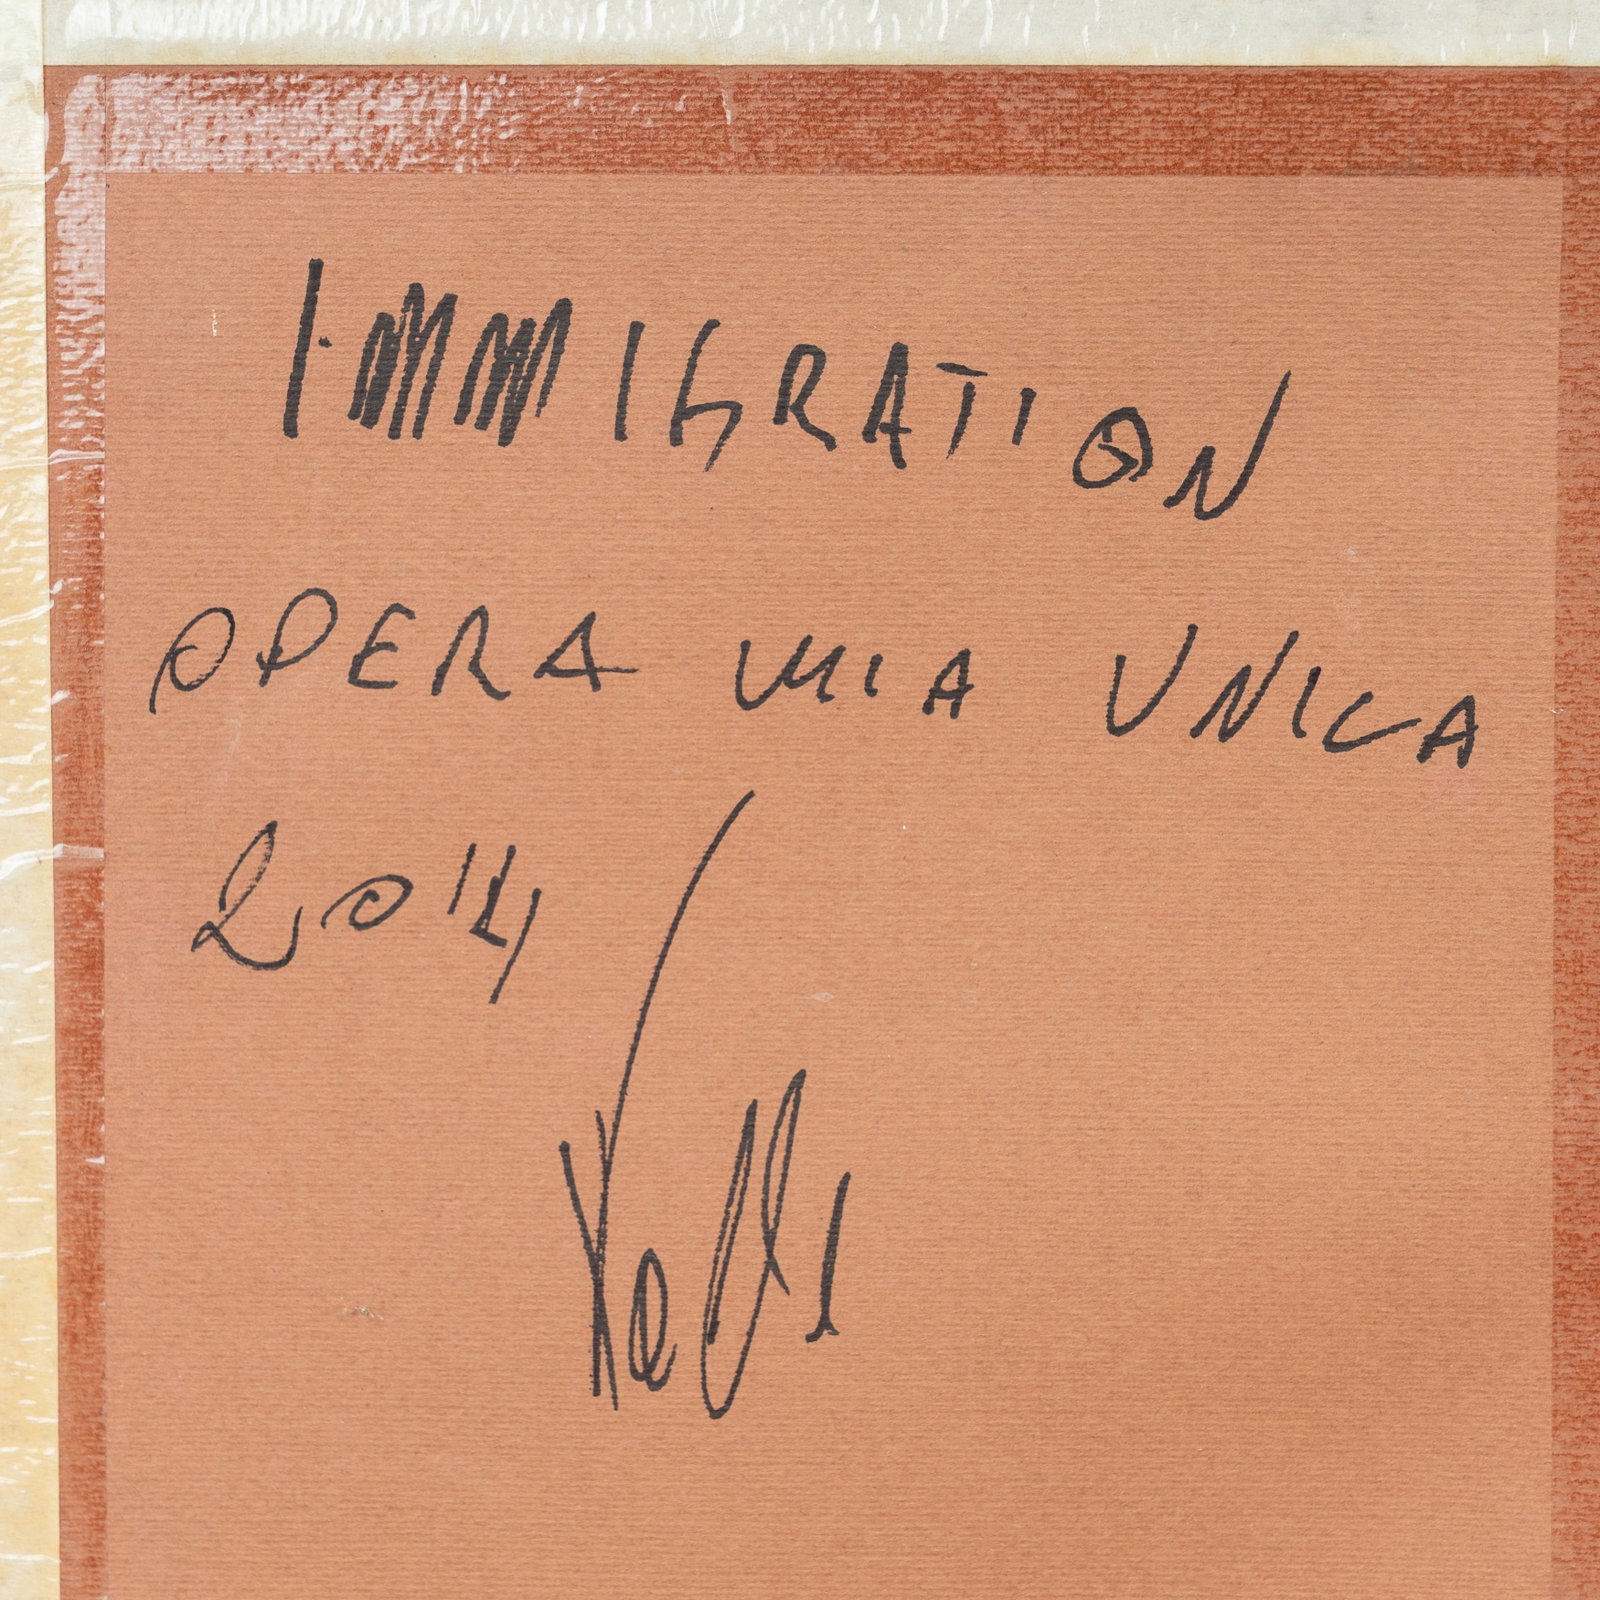 IMMIGRATION
OPERA MIA UNICA
2014